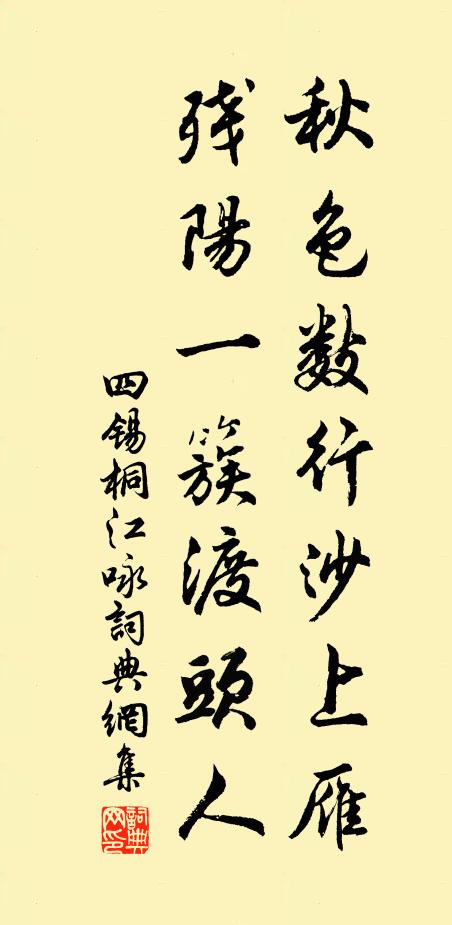 秋色数行沙上雁
残陽一簇渡頭人
四锡桐江咏詞典網集
詞典網印